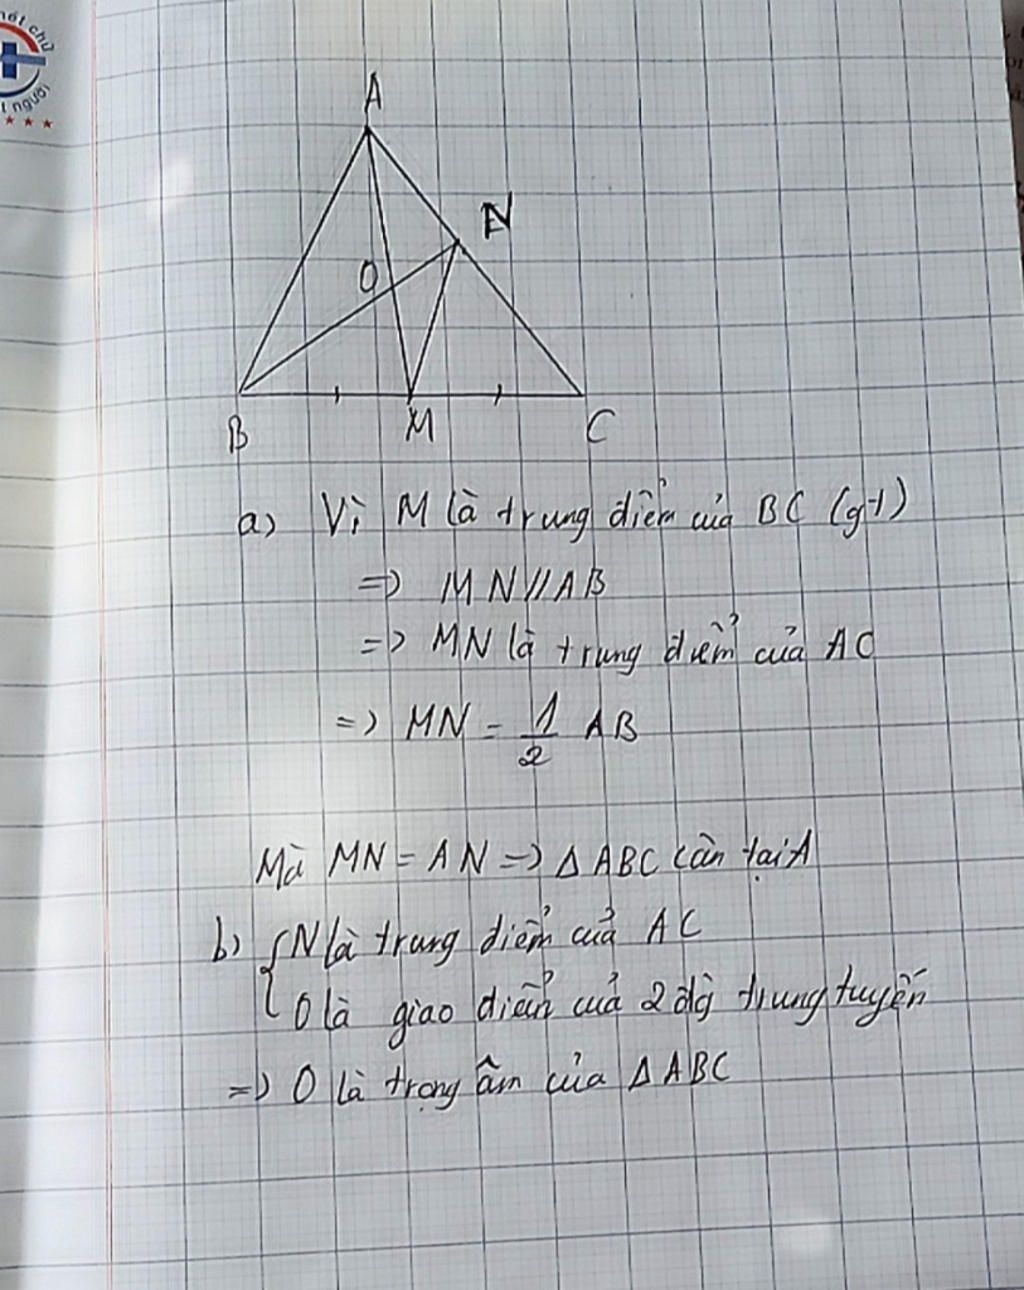 nét chữ
t người
A
N
O
B
M
C
a) Vì M là trung điểm của BC (gt)
=> MN//AB
=> MN là trung điểm của AC
=> MN = 1/2 AB
Mà MN = AN => Δ ABC cân tại A
b) { N là trung điểm của AC
O là giao điểm của 2 đg trung tuyến
=> O là trọng âm của Δ ABC